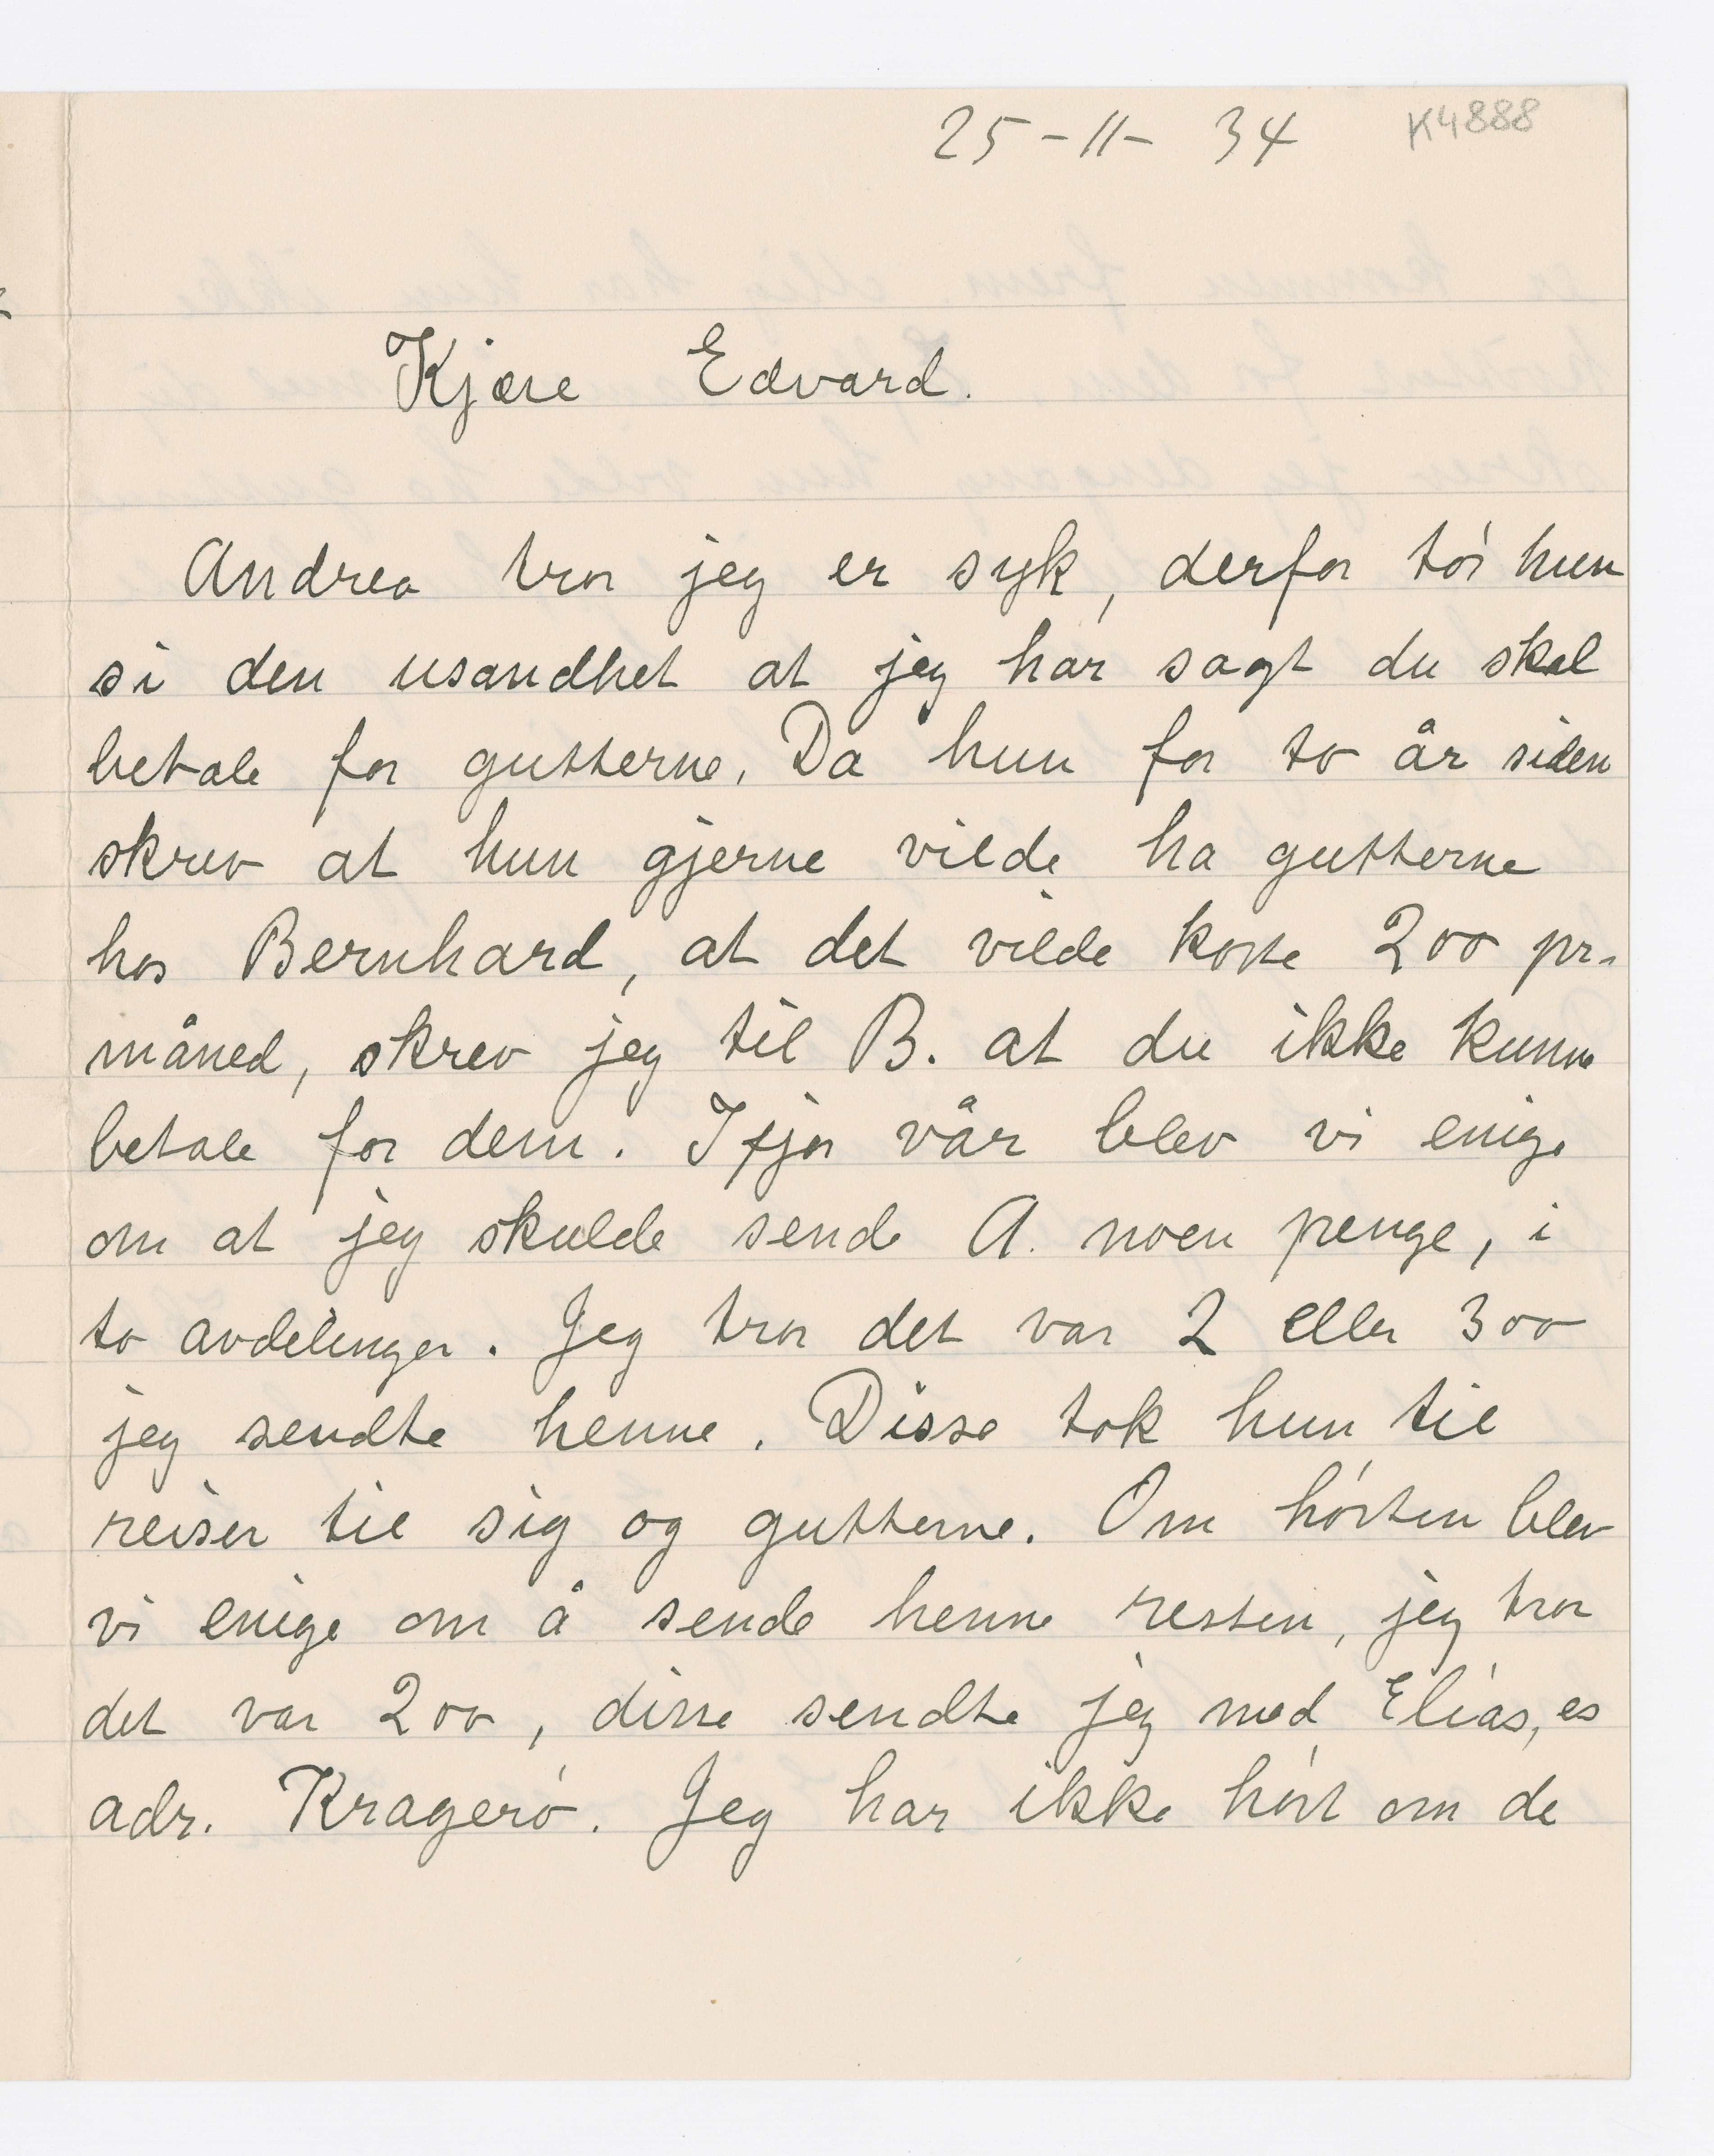 25-11-34 K4888
Kjære Edvard.
Andrea tror jeg er syk, derfor tör hun
si den usandhet at jeg har sagt du skal
betale for gutterne. Da hun for to år siden
skrev at hun gjerne vilde ha gutterne
hos Bernhard, at det vilde koste 200 pr.
måned, skrev jeg til B. at du ikke kunne
betale for dem. Ifjor vår blev vi enige
om at jeg skulde sende A. noen penge, i
to avdelinger. Jeg tror det var 2 eller 300
jeg sendte henne. Disse tok hun til
reiser til sig og gutterne. Om hösten blev
vi enige om å sende henne resten, jeg tror
det var 200, disse sendte jeg med Elias,
adr. Kragerö. Jeg har ikke hört om de